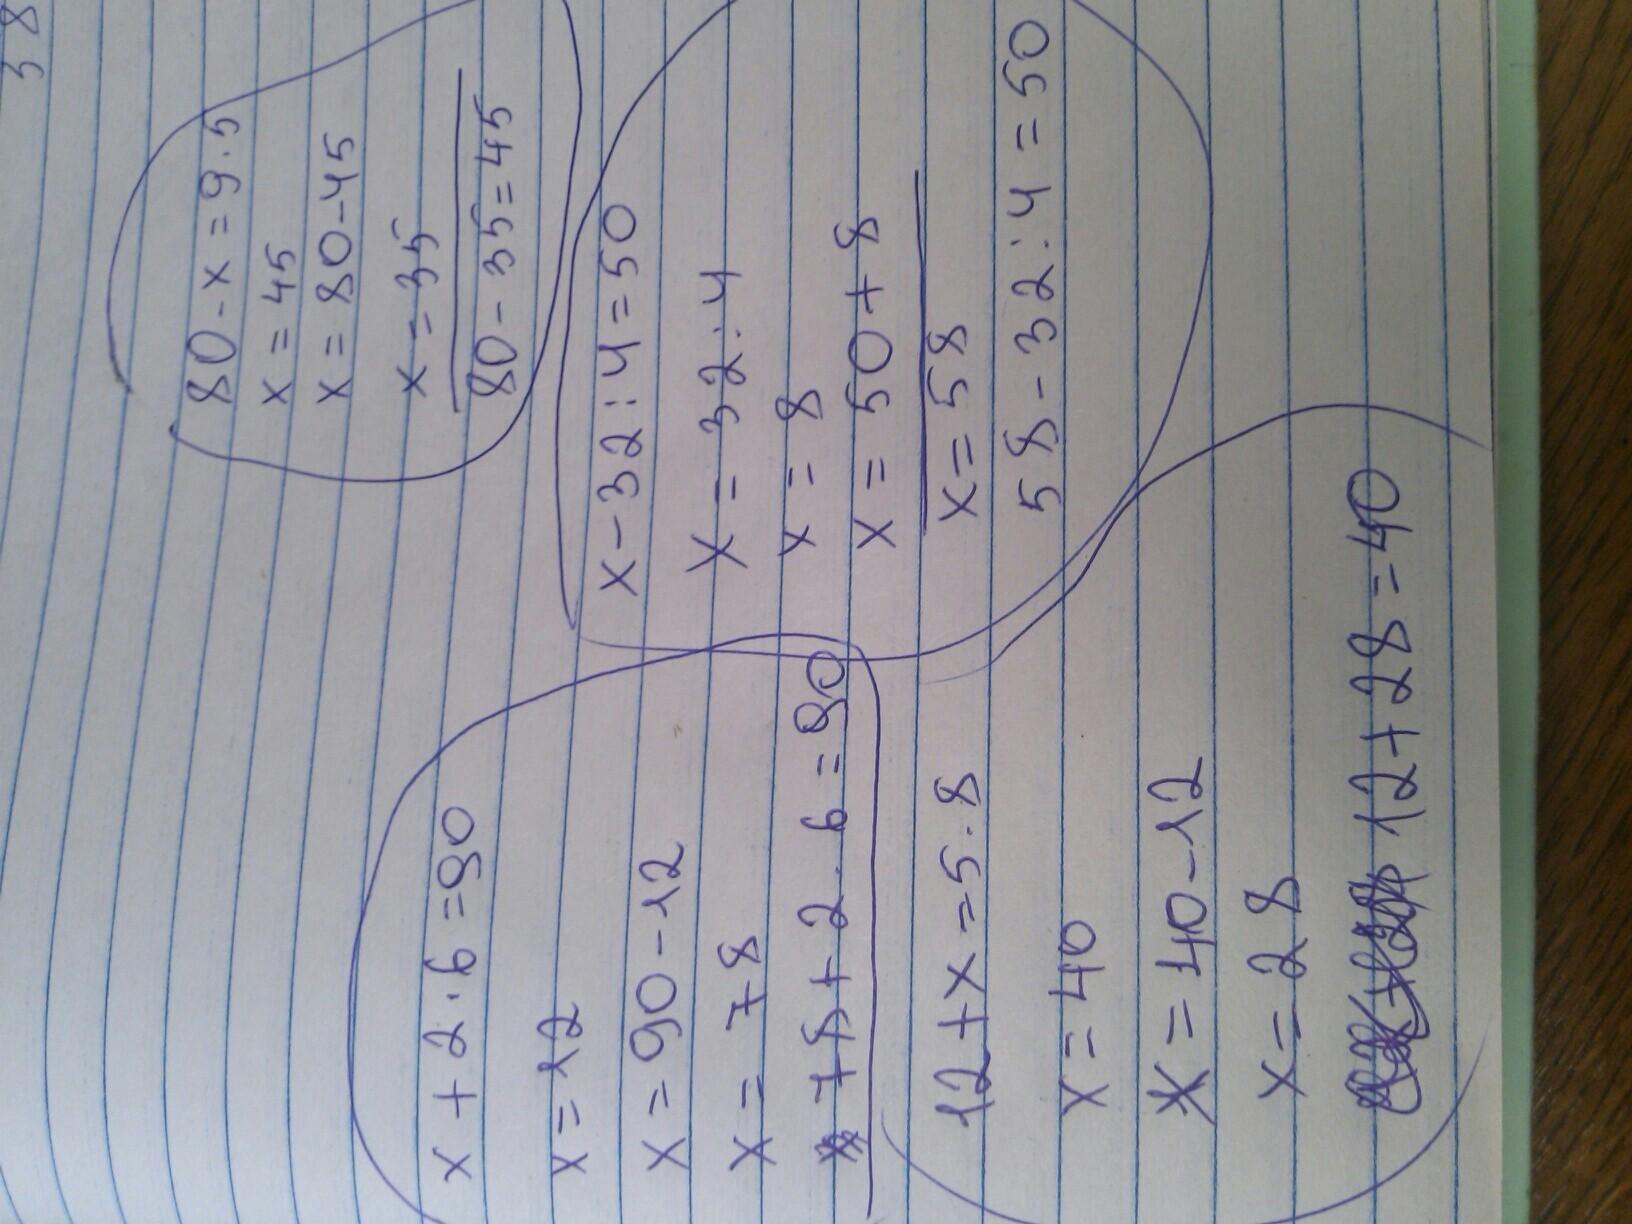 38
x + 2 · 6 = 90
x = 12
x = 90 - 12
x = 78
78 + 2 · 6 = 90
80 - x = 9 · 5
x = 45
x = 80 - 45
x = 35
80 - 35 = 45
x - 32 : 4 = 50
x = 32 : 4
x = 8
x = 50 + 8
x = 58
58 - 32 : 4 = 50
12 + x = 5 · 8
x = 40
x = 40 - 12
x = 28
12 + 28 = 40